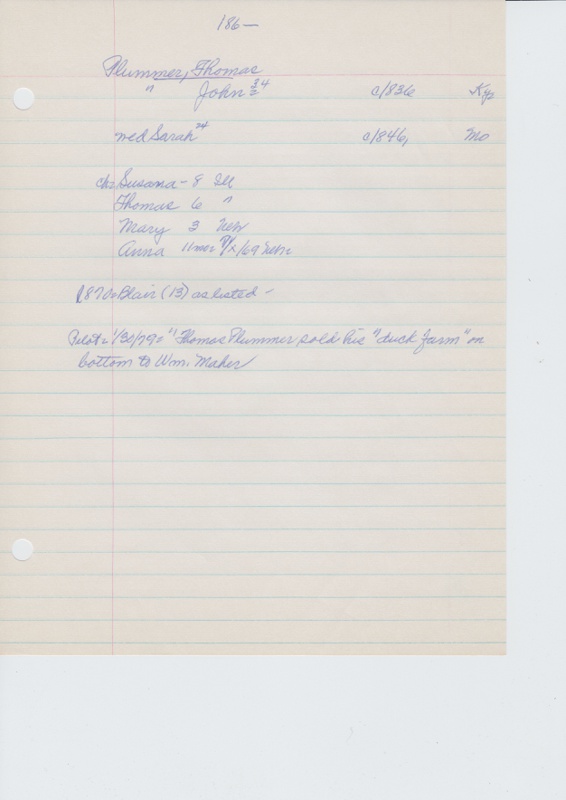 186—
Plummer, Thomas
" John 34 c/836 Ky
wed Sarah 24 c/846, Mo
chs Susana - 8 Ill
Thomas 6 "
Mary 3 Neb
Anna 11mos /69 Nebr
1870= Blair (13) as listed -
Pilot= 1/30/79= "Thomas Plummer sold his "duck farm" on
bottom to Wm. Maher